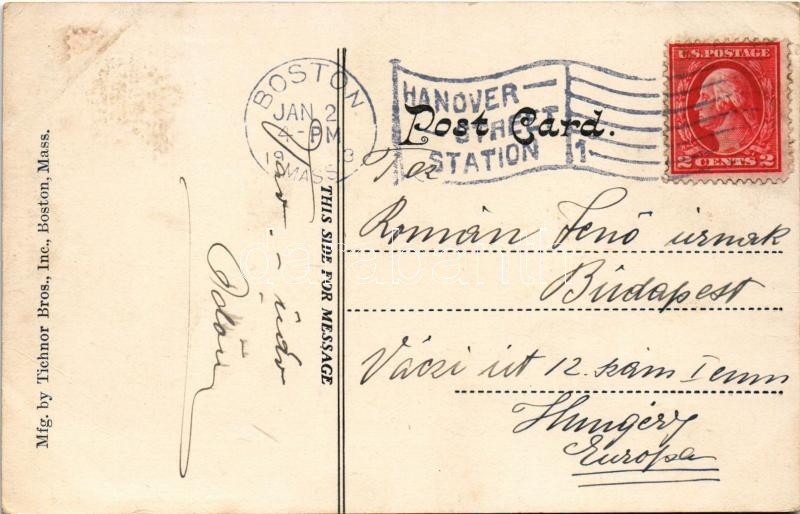 Mfg. by Tichnor Bros., Inc., Boston, Mass.
BOSTON
JAN 2
4-PM
3
MASS.
HANOVER
STREET
STATION
1
U.S. POSTAGE
2 CENTS 2
Post Card.
THIS SIDE FOR MESSAGE
üdv
Ödön
Tez
Román Jenő úrnak
Budapest
Váczi út 12. szám I em
Hungéry
Europa
darabanth